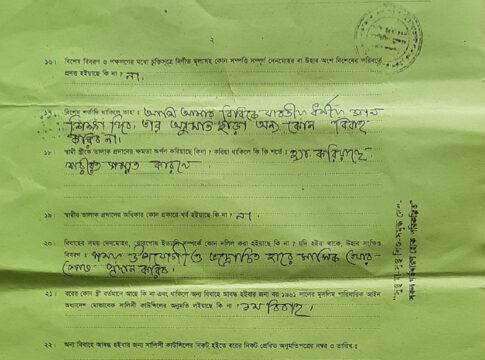 ২
১৬। বিশেষ বিবরণ ও পক্ষগণের মধ্যে চুক্তিসূত্রে নির্ণীত মূল্যসহ কোন সম্পত্তি সম্পূর্ণ দেনমোহর বা উহার অংশ বিশেষের পরিবর্তে
প্রদত্ত হইয়াছে কি না? না,
১৭। বিশেষ শর্তাদি থাকিলে তাহা: আমি আমার বিবিকে যাবতীয় ধর্মীয়
শিক্ষা দিব, তার অনুমতি ছাড়া অন্য কোন বিবাহ
করিব না।
১৮। স্বামী স্ত্রীকে তালাক প্রদানের ক্ষমতা অর্পণ করিয়াছে কিনা? করিয়া থাকিলে কি কি শর্তে: হ্যা করিয়াছে
শরীয়ত সম্মত কারনে
১৯। স্বামীর তালাক প্রদানের অধিকার কোন প্রকারে খর্ব হইয়াছে কি না? না,
২০। বিবাহের সময় দেনমোহর, খোরপোষ ইত্যাদি সম্পর্কে কোন দলিল করা হইয়াছে কি না? যদি হইয়া থাকে, উহার সংক্ষিপ্ত
বিবরণ: ভদ্রোচিত হারে মাসিক খোর-
পোষ প্রদান করিব।
২১। বরের কোন স্ত্রী বর্তমানে আছে কি না এবং থাকিলে অন্য বিবাহে আবদ্ধ হইবার জন্য বর ১৯৬১ সালের মুসলিম পারিবারিক আইন
অধ্যাদেশ মোতাবেক সালিসী কাউন্সিলের অনুমতি লইয়াছে কি না? ১ম বিবাহ,
২২। অন্য বিবাহে আবদ্ধ হইবার জন্য সালিসী কাউন্সিলের নিকট হইতে বরের নিকট প্রেরিত অনুমতিপত্রের নম্বর ও তারিখ: